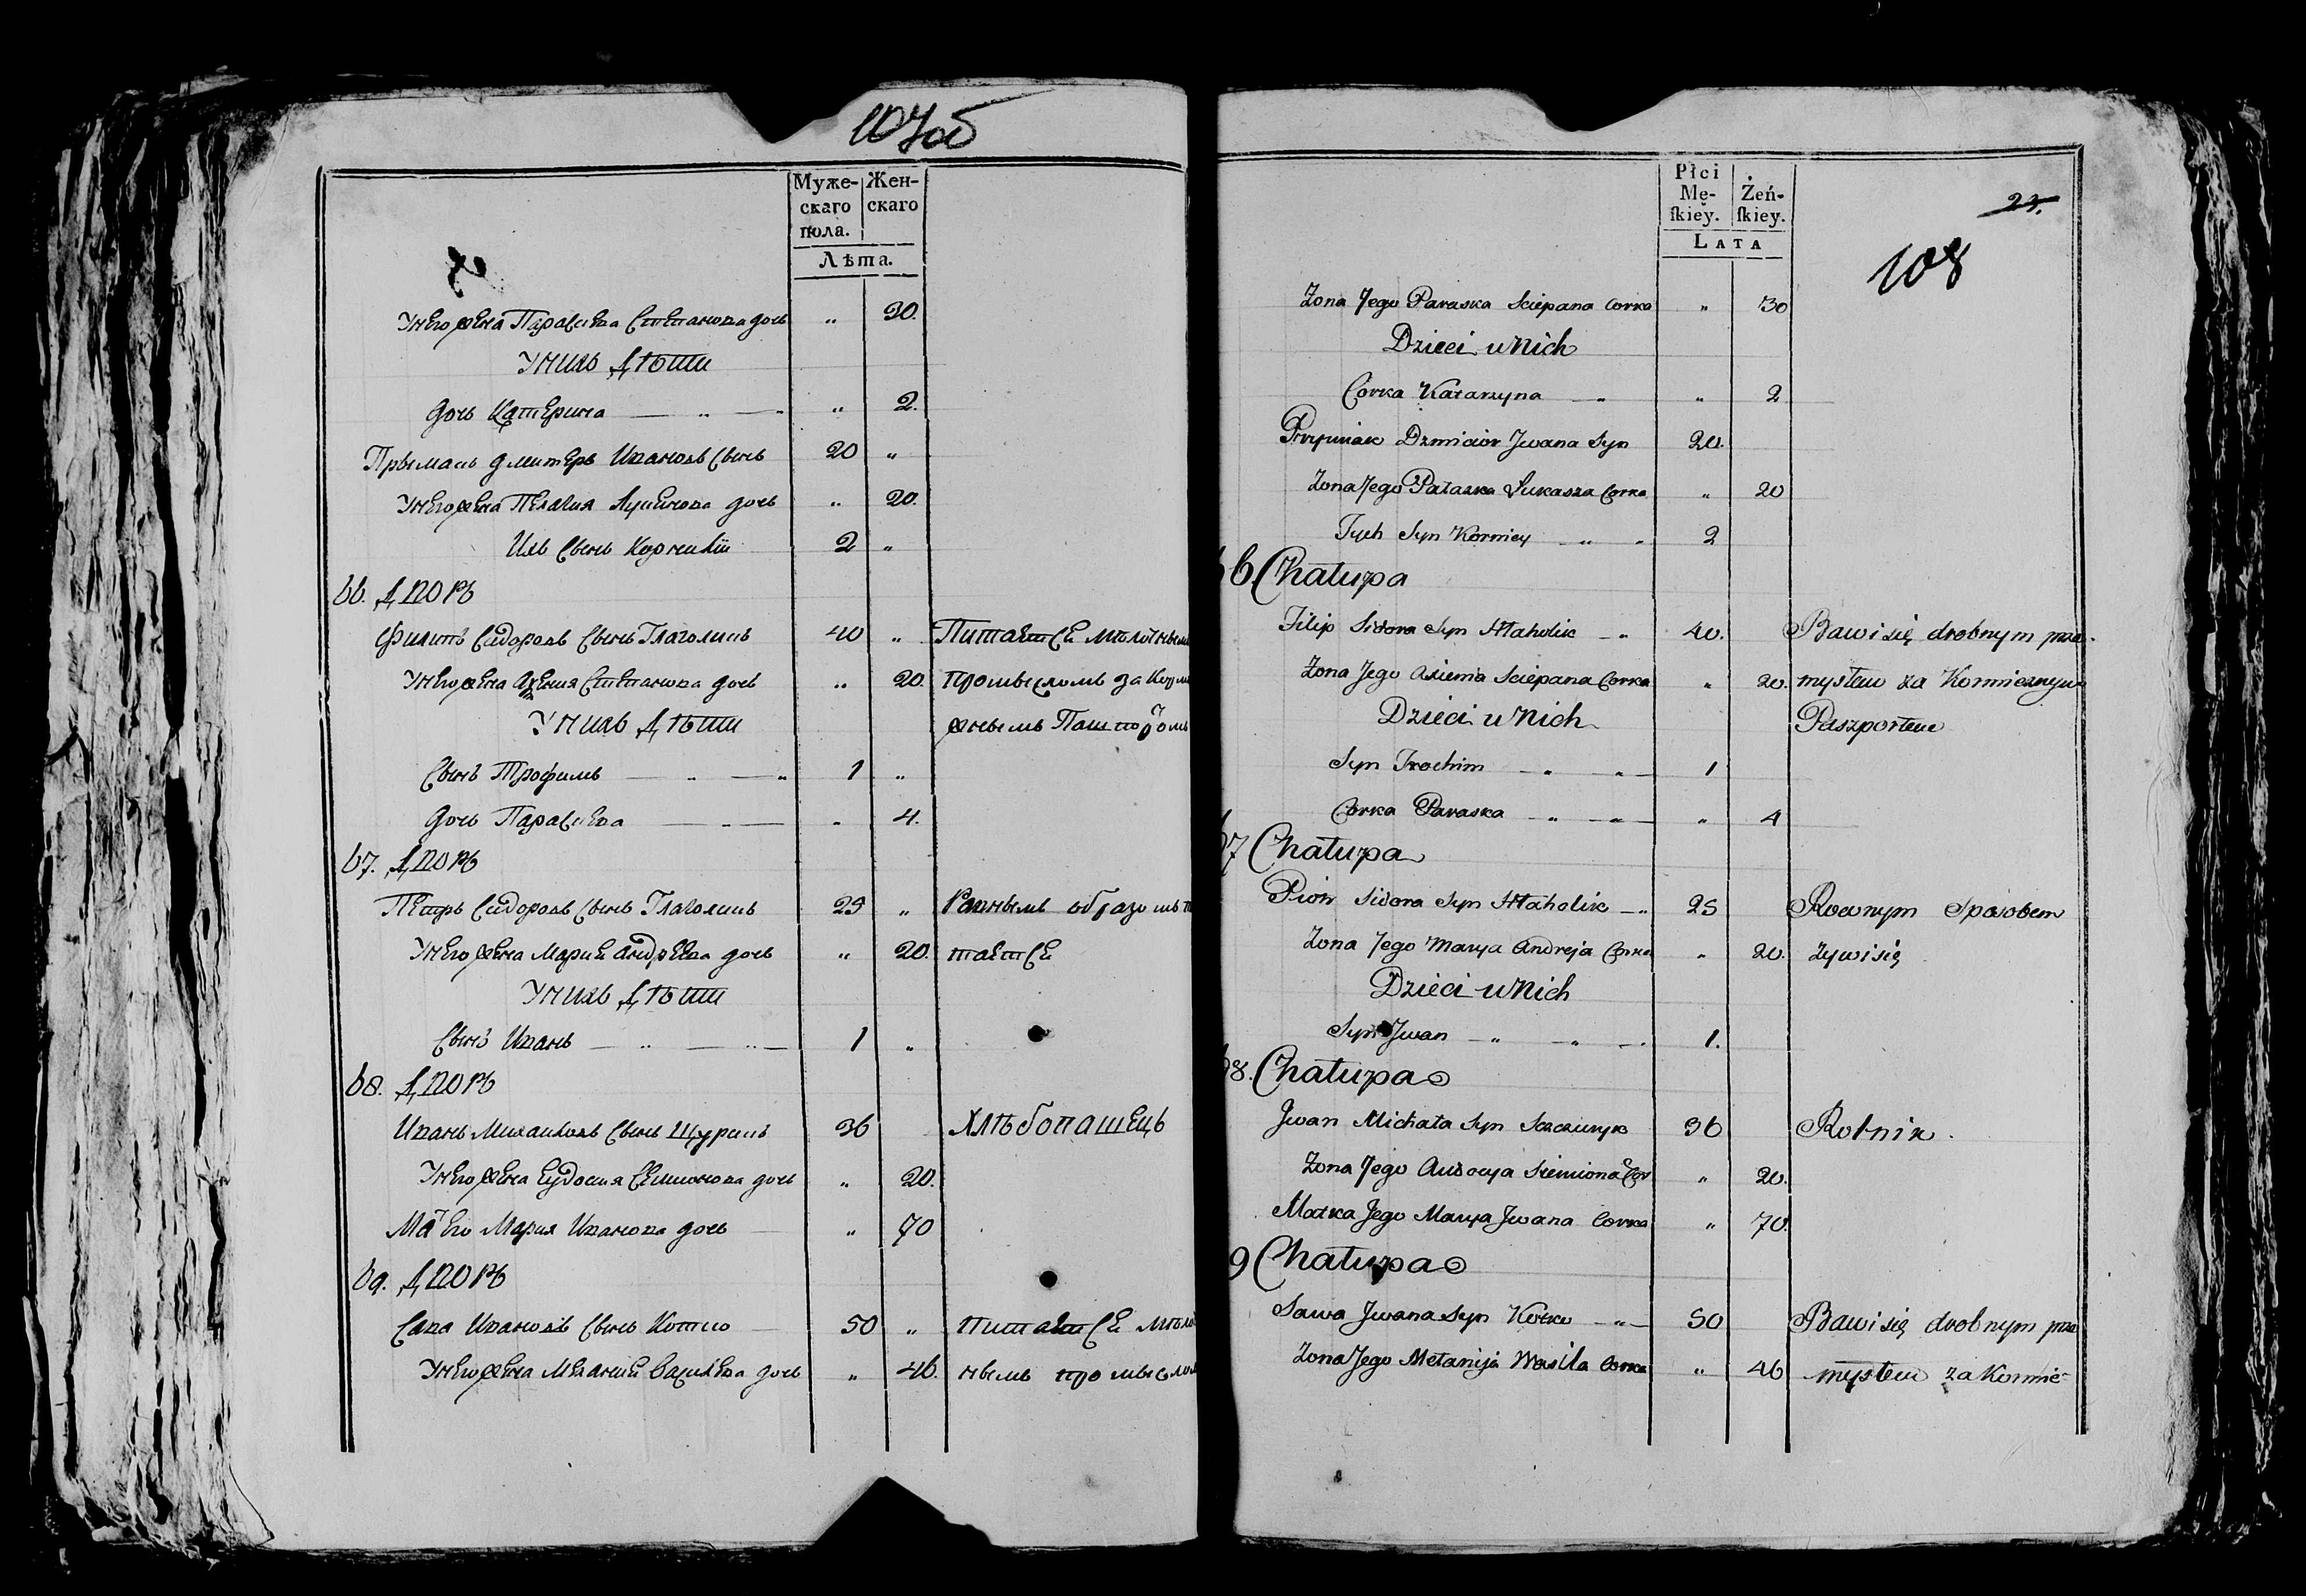 107об
Муже- Жен-
скаго скаго
пола.
Лѣта.
Унего жена Парасцева Степанова дочь „ 30.
Унихъ Дѣти
дочь Катерина „ „ 2.
Прымаць дмитеръ Ивановъ Сынъ 20 „
Унего жена Пелагия дочь „ 20.
Ихъ Сынъ Корнилій 2 „
66. Дворъ
Филипъ Сидоровъ Сынъ Глаголицъ 40 „ Питается мѣлочнымъ
Унего жена Степанова дочь „ 20. промысломъ за Корм
Унихъ Дѣти жнымъ Пашпортомъ
Сынъ Трофимъ „ „ 1 „
дочь Парасцева „ „ 4.
67. Дворъ
Петръ Сидоровъ Сынъ Глаголицъ 25 „ Равнымъ образомъ
Унего жена Марие Андреева дочь „ 20. тается
Унихъ Дѣти
Сынъ Иванъ „ „ 1 „
68. Дворъ
Иванъ Михайловъ Сынъ Щурицъ 36 Хлѣбопашецъ
Унего жена Еудосия Семионова дочь „ 20.
Мать Его Мария Иванова дочь „ 70
69. Дворъ
Сава Ивановъ Сынъ Котло 50 „ Питается мѣлоч
Унего жена Мелание Василева дочь „ 46. нымъ промысломъ
Płci
Mę- Żeń-
ſkiey. ſkiey.
LATA
23.
108
Zona Jego Paraska Sciepana Corka „ 30
Dzieci u Nich
Corka Katarzyna „ „ 2
Przymak Dzmicior Jwana Syn 20.
Zona Jego Pałaska Łukasza Corka „ 20
Tych Syn Korniey „ „ 2
66. Chałupa
Filip Sidora Syn Hłaholic „ 40. Bawi się drobnym prze-
Zona Jego Axienia Sciepana Corka „ 20. mysłem za Kormieżnym
Dzieci u Nich Paszportem
Syn Trochim „ „ 1
Corka Paraska „ „ „ 4
67 Chałupa
Piotr Sidora Syn Hłaholic „ 25 Rownym Sposobem
Zona Jego Marya Andreja Corka „ 20. żywi się
Dzieci u Nich
Syn Jwan „ „ 1.
68. Chałupa
Jwan Michała Syn 36 Rolnik.
Zona Jego Audocya Siemiona Cor „ 20.
Matka Jego Marya Jwana Corka „ 70.
9 Chałupa
Sawa Jwana Syn Kotło „ 50 Bawi się drobnym prze
Zona Jego Mełanija Wasila Corka „ 46 mysłem za Kormie-